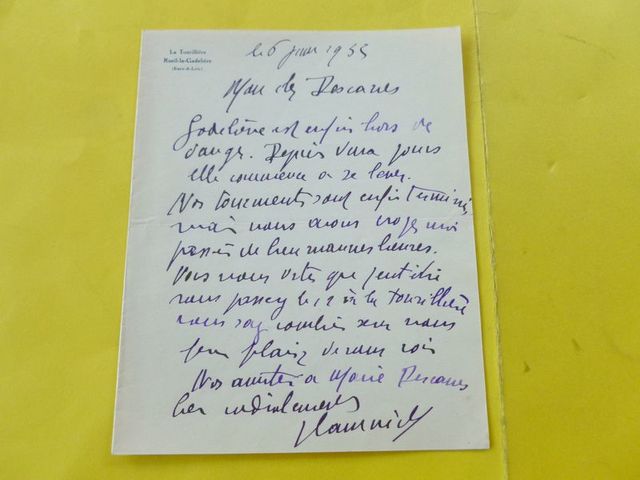 La Tourillière
Rueil-la-Gadelière
(Eure-&-Loir)
le 6 juin 1955
Mon cher Descaves
Godelième est enfin hors de
danger. Depuis jours
elle commence a se lever.
Nos tourments sont enfin terminés
mais nous avons
passés de bien heures.
Vous nous dites que peut être
vous passez le 12 à la Tourillière
vous savez combien sera nous
fera plaisir de vous voir
Nos amitiés a Marie Descaves
bien cordialement
Vlaminck